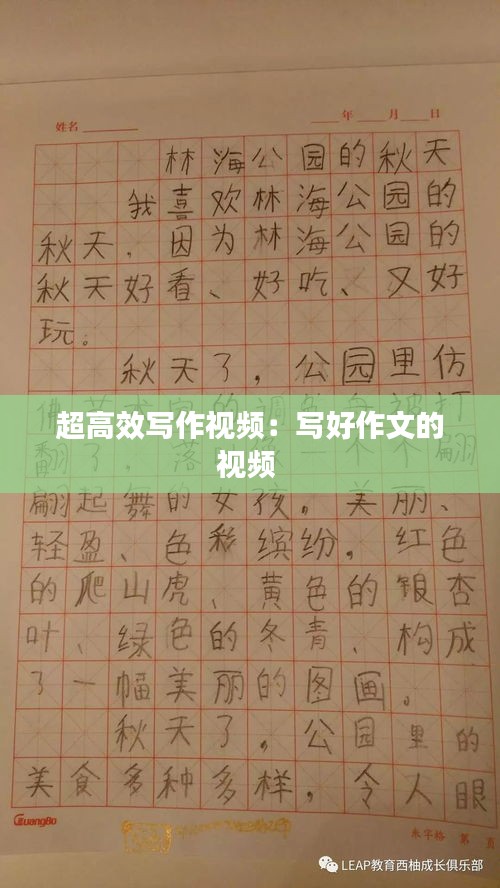 姓名 年 月 日
林海公园的秋天
我喜欢林海公园的
秋天，因为林海公园的
秋天好看、好吃、又好
玩。
秋天了，公园里仿
超高效写作视频：写好作文的
视频
翩起舞的女孩。美丽、
轻盈、色彩缤纷。红色
的爬山虎、黄色的银杏
叶、绿色的冬青、构成
了一幅美丽的图画。
秋天了，公园里的
美食多种多样，令人眼
GuangBo
米字格 第 页
LEAP教育西柚成长俱乐部